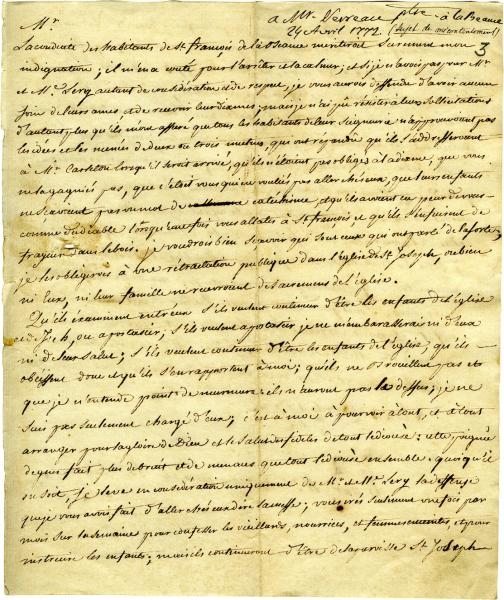 a Mr. Verreau ptre à la Beauce
29 Avril 1772 (Sujet de mécontentement)
3
Mr.
La conduite des habitants de St françois de la Beauce mériteroit surement mon
indignation; il m'en a couté pour l'arrêter et la calmer; et si je n'avois pas pour Mr
et Me. Lery autant de considération et de respect, je vous aurois deffendu d'avoir aucun
soin de leurs ames et de recevoir leur dixmes; mais je n'ai pu résister à leurs sollicitations
d'autant plus qu'ils m'ont assuré que tous les habitants de leur Seigneurie n'approuvoient pas
les idées et les menées de deux ou trois mutins, qui ont répandu qu'ils s'addresseroient
à Mr. Carleton lorsqu'il seroit arrivé, qu'ils n'étoient pas obligés à la dixme, que vous
ne la gagniés pas, que c'étoit vous qui ne vouliés pas aller chés eux, que leurs enfants
ne scavoient pas un mot de catéchisme et qu'ils avoient eu peur de vous
comme du diable lorsque une fois vous allates à St françois et qu'ils s'enfuirent de
frayeur dans le bois. je voudrois bien scavoir qui sont ceux qui ont parlé de la sorte,
je les obligerois à une rétractation publique dans l'église de St Joseph, ou bien
ni eux, ni leur famille ne recevront de Sacremens de l'église.
Qu'ils examinent entr'eux s'ils veulent continuer d'être les enfants de l'église
et de J. ch. ou apostasier; s'ils veulent apostasier je ne m'embarasserai ni d'eux
ni de leur Salut; s'ils veulent continuer d'être les enfants de l'église, qu'ils
obéissent donc et qu'ils s'en rapportent à moi; qu'ils ne brouillent pas et
que je n'entende point de murmure: ils n'auront pas le dessus; je ne
suis pas seulement chargé d'eux; c'est à moi à pourvoir à tout, et à tout
arranger pour la gloire de Dieu et le salut des fidèles de tout le diocèse: cette poignée
de gens fait plus de bruit et de menaces que tout le diocèse ensemble. quoiqu'il
en soit, je lève en considération uniquement de Mr. et Me. Lery la deffense
que je vous avois fait d'aller chés eux dire la messe; vous irés seulement une fois par
mois sur la semaine pour confesser les vieillards, nourrices, et femmes enceintes, et pour
instruire les enfants; mais ils continueront d'être de la paroisse St Joseph